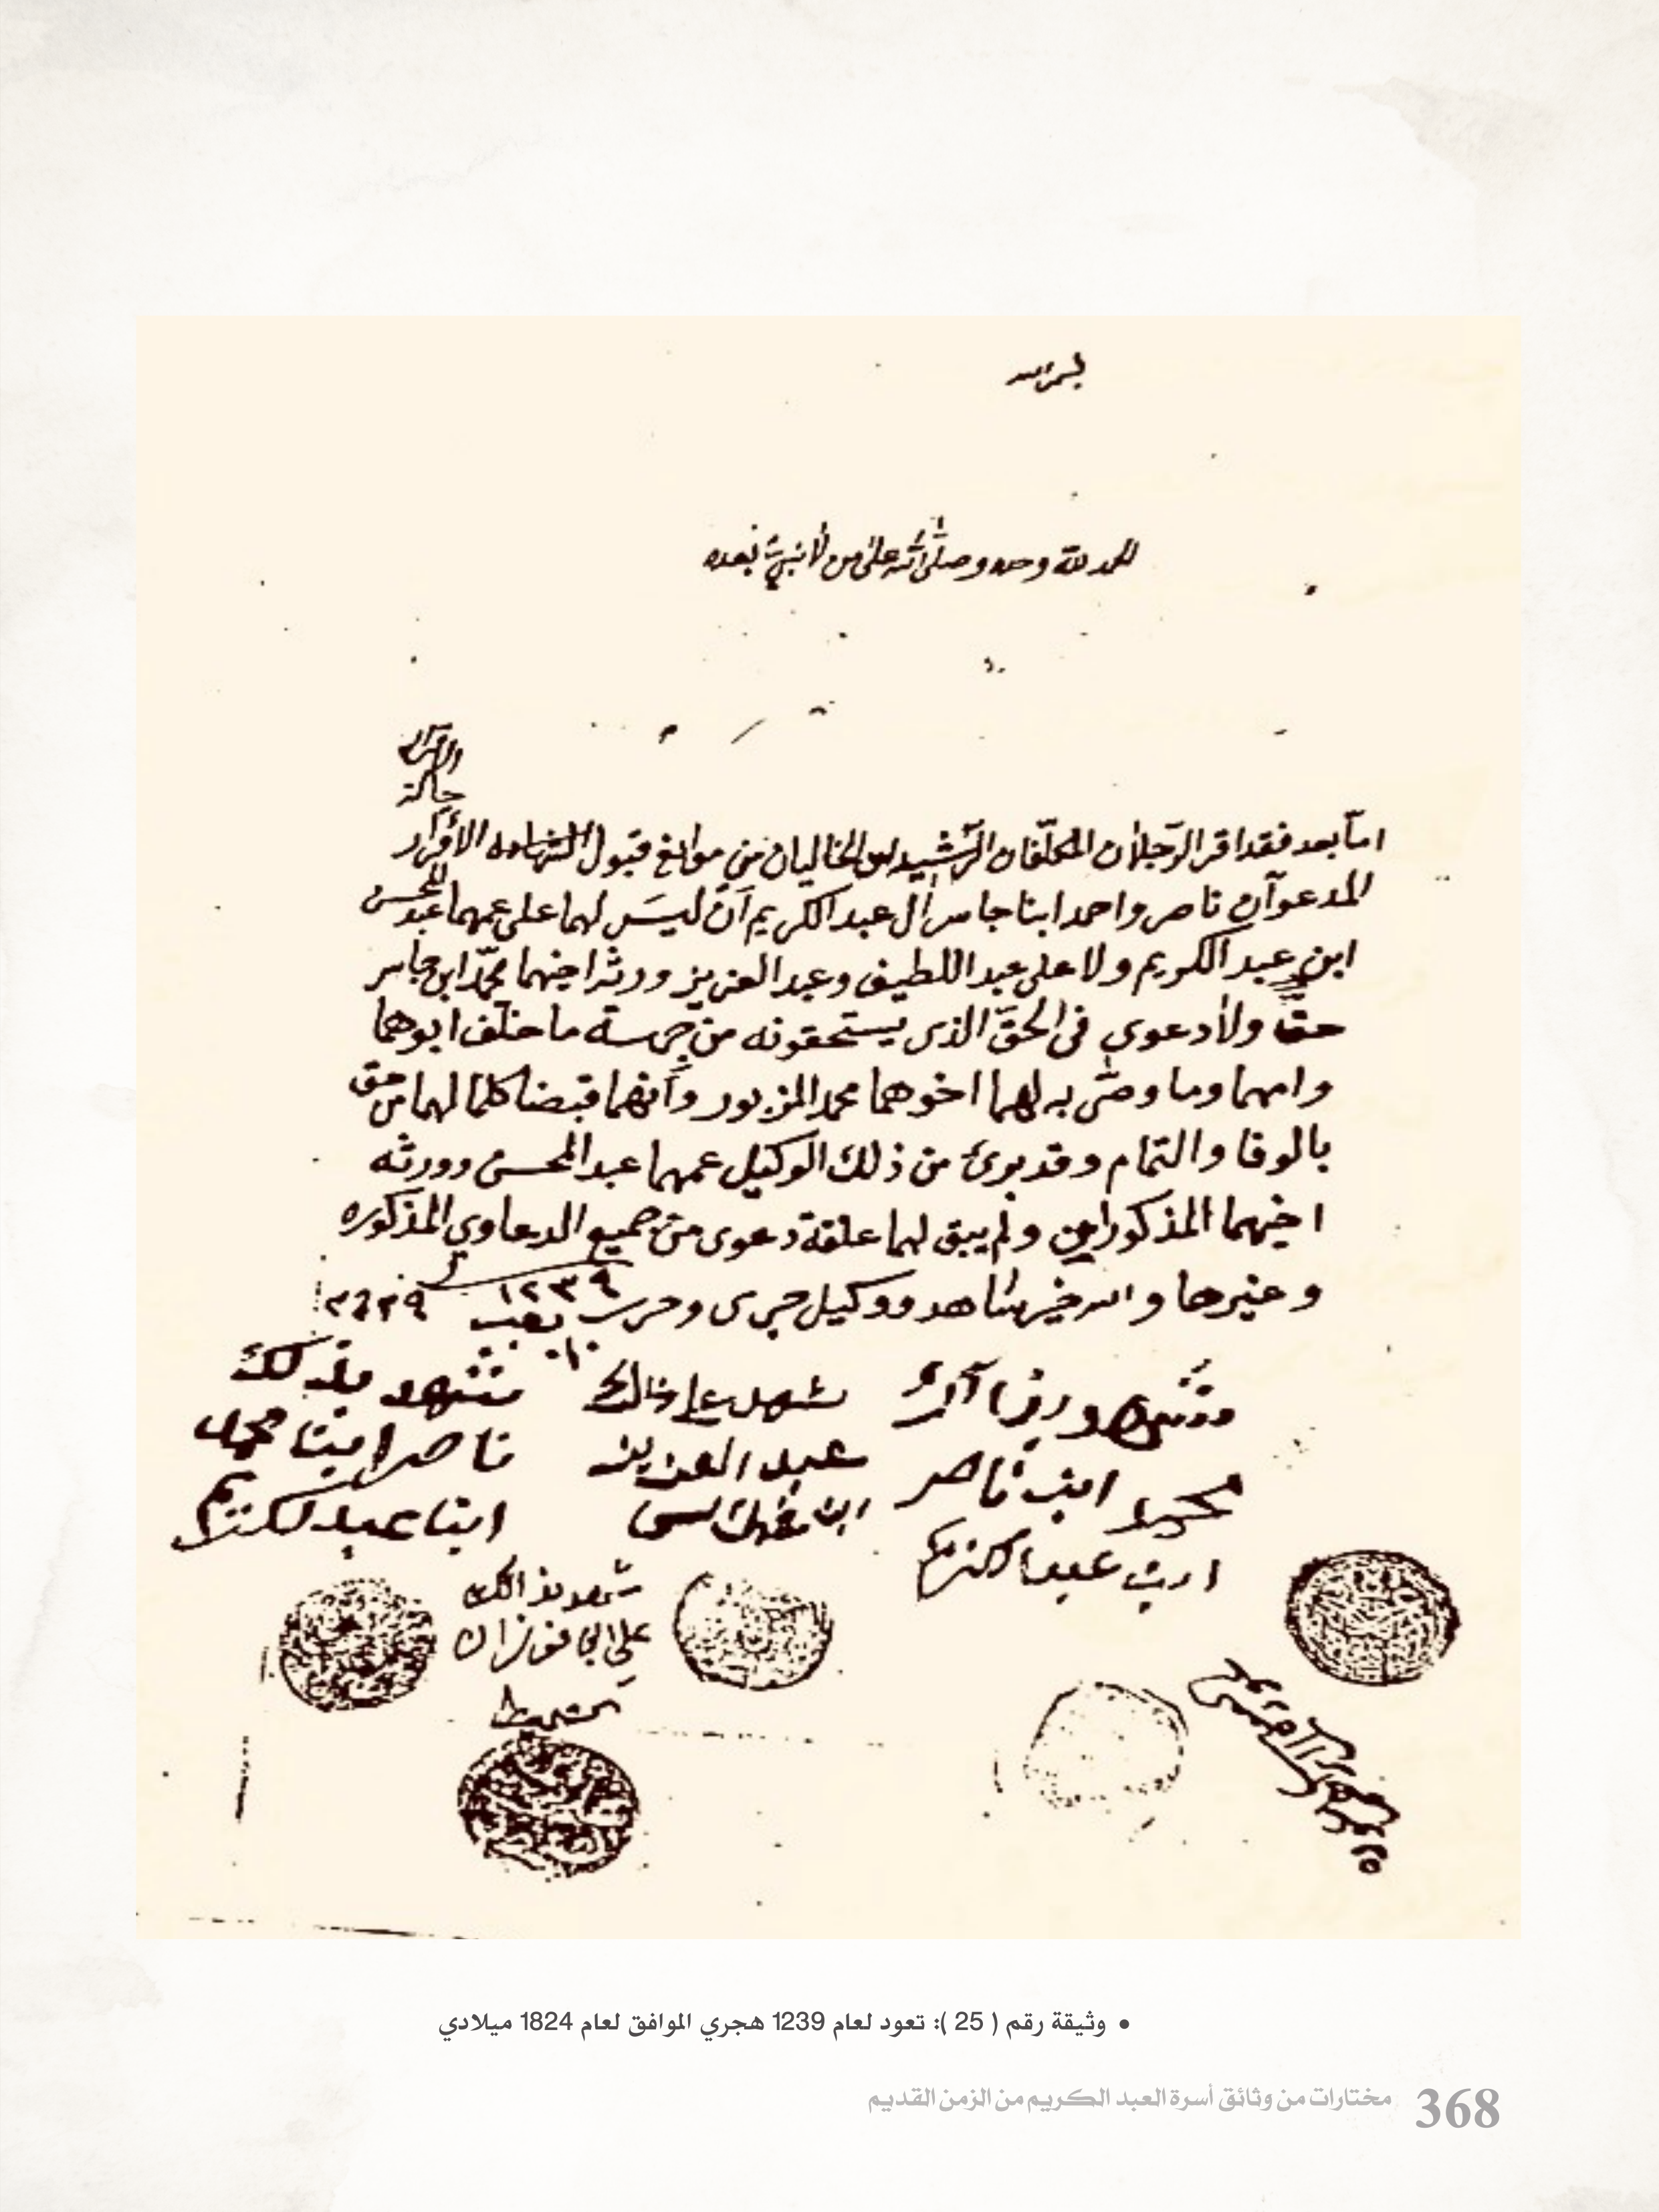 بسم الله
الحمد لله وحده وصلى الله على من لا نبي بعده
حالة
اما بعد فقد اقر الرجلان المكلفان الرشيدان الخاليان من موانع قبول الشهاده الاقرار
المدعوان ناصر واحمد ابنا جاسر ال عبد الكريم ان ليس لهما على عمهما عبد المحسن
ابن عبد الكريم ولا على عبد اللطيف وعبد العزيز ورثة اخيهما محمد ابن جاسر
حق ولا دعوى في الحق الذي يستحقونه من جهة ما خلف ابوهما
وامهما وما وصى به لهما اخوهما محمد المزبور وانهما قبضا كلما لهما من حق
بالوفا والتمام وقد برئ من ذلك الوكيل عمهما عبد المحسن وورثه
اخيهما المذكورين ولم يبق لهما علقة دعوى من جميع الدعاوي المذكوره
وغيرها والله خير شاهد ووكيل جرى وحرر
١٢٣٩
شهد على ذالك
عبد العزيز
ابن
نشهد بذلك
ناصر ابن محمد
ابن عبد لكريم
محمد ابن ناصر
ابن عبد الكريم
شهد بذالك
علي
• وثيقة رقم ( 25 ): تعود لعام 1239 هجري الموافق لعام 1824 ميلادي
368 مختارات من وثائق أسرة العبد الكريم من الزمن القديم